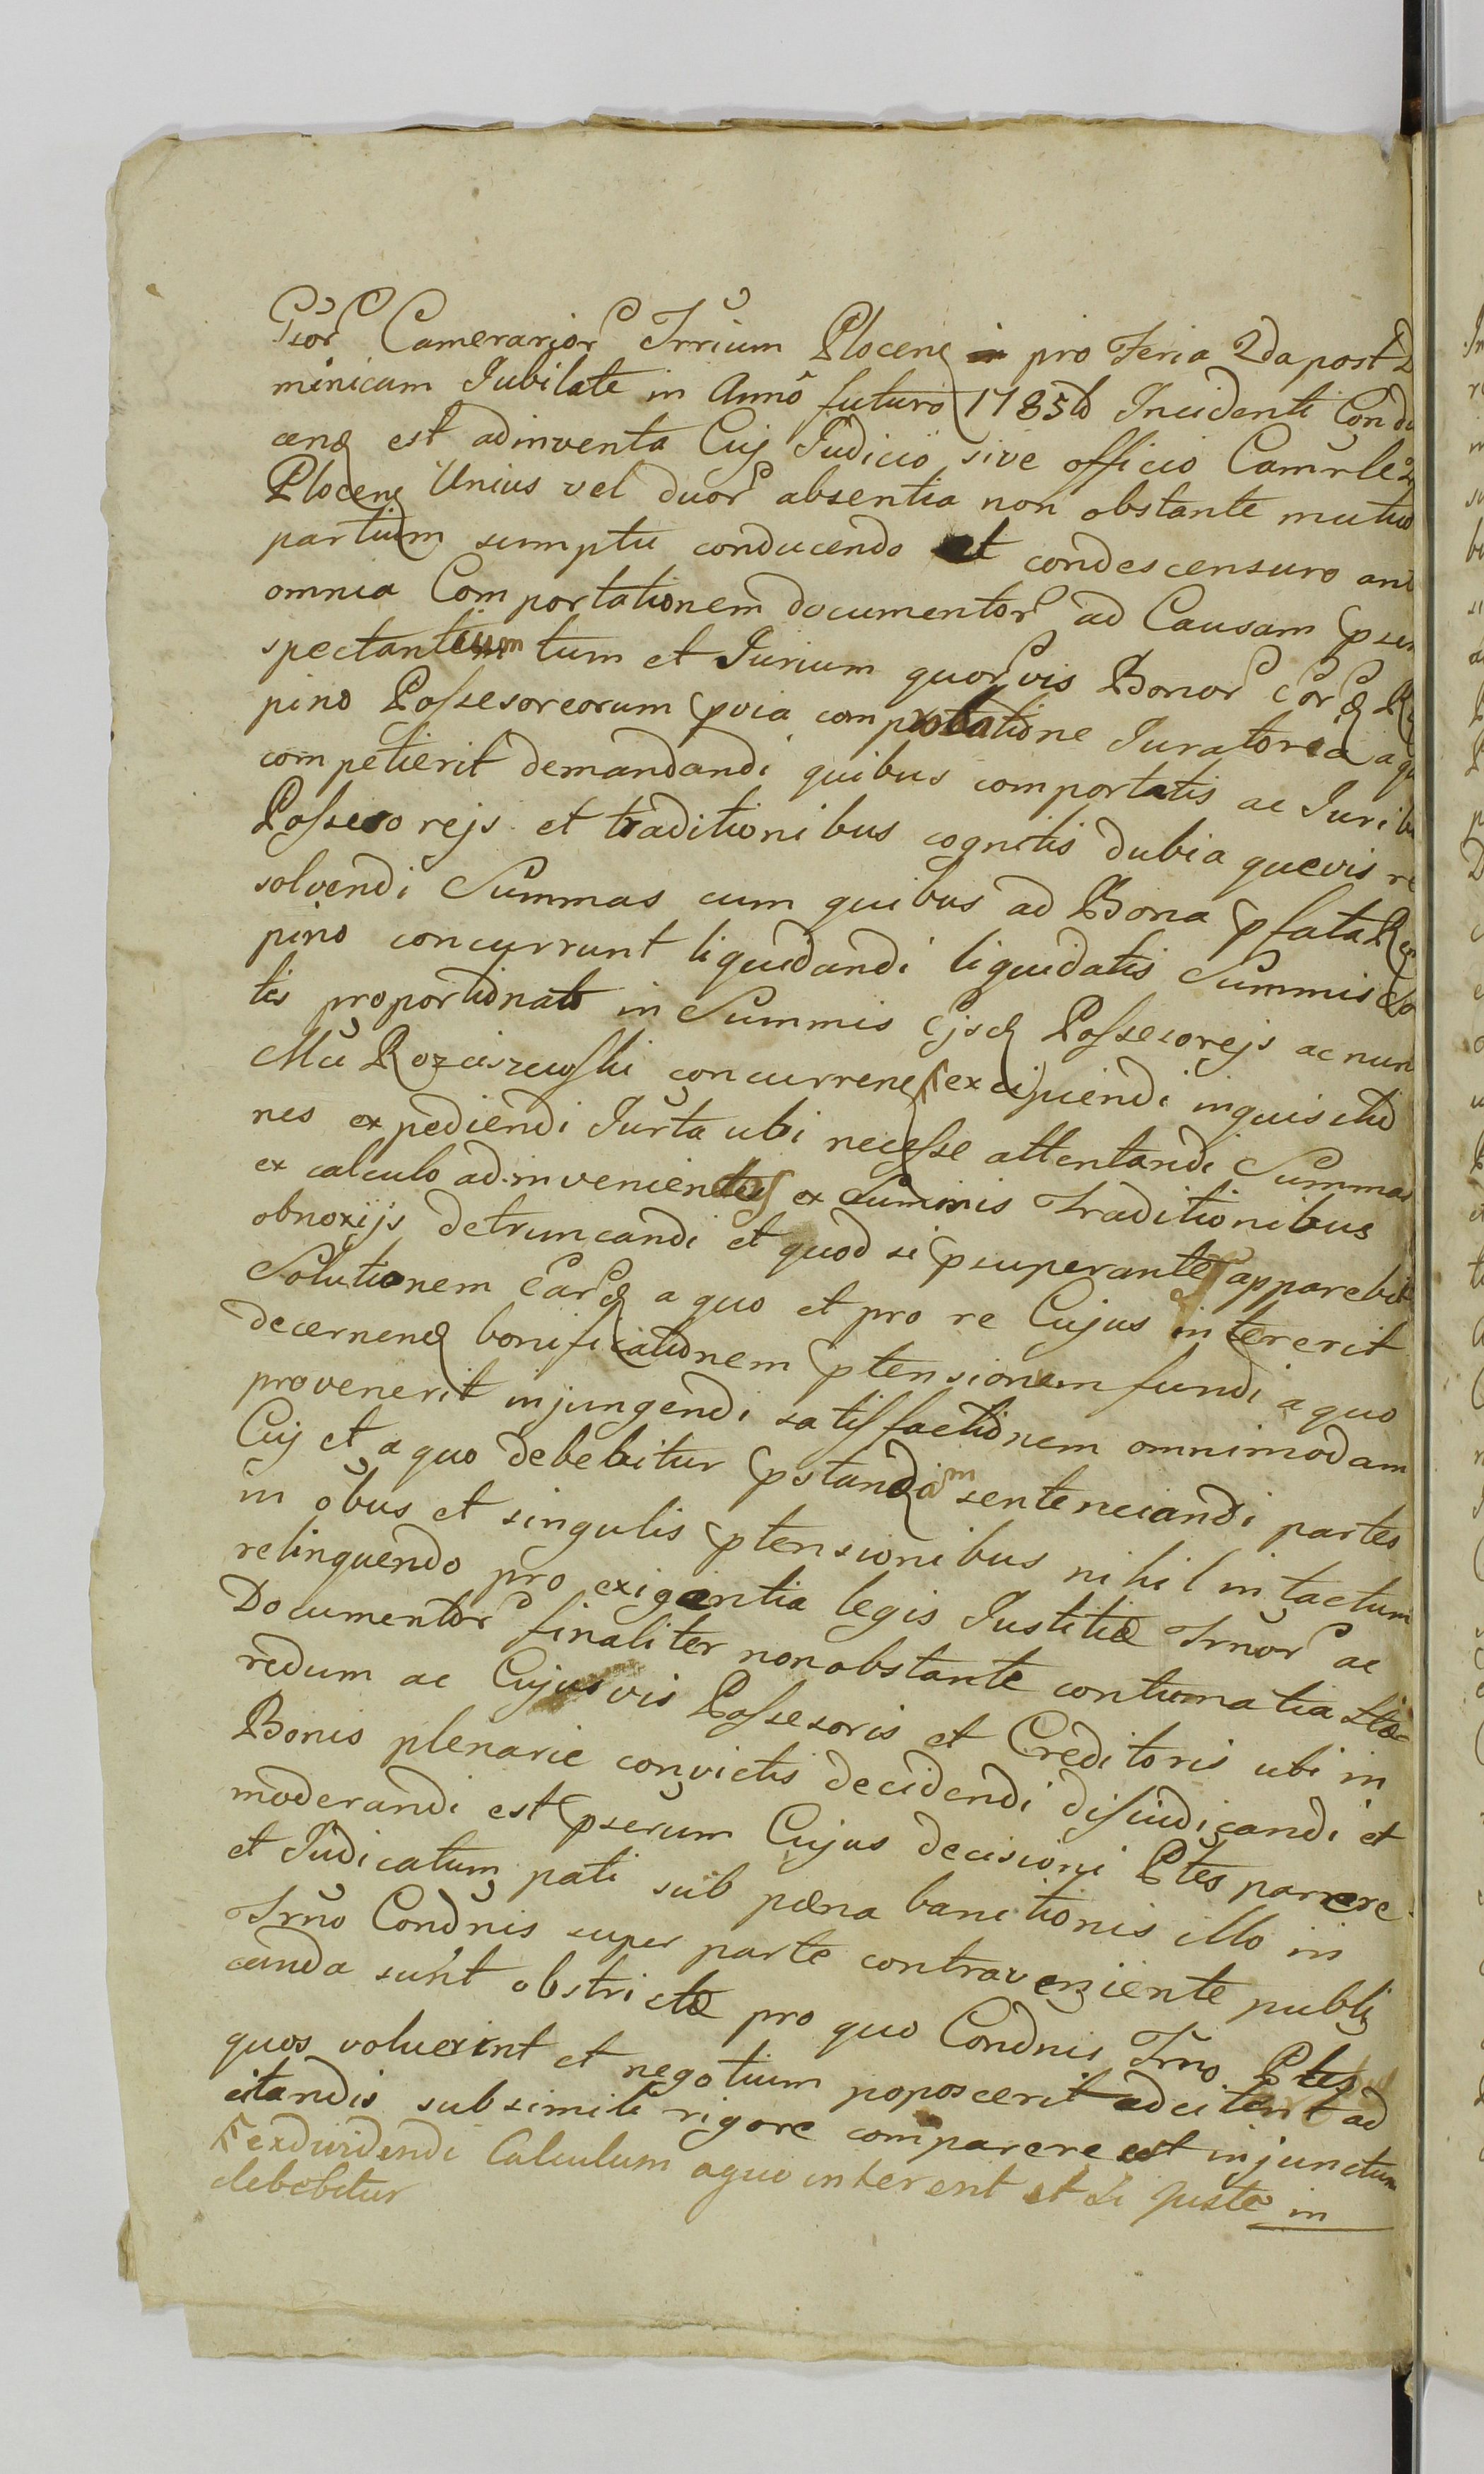 Gsor Camerarior Trrium Plocen in pro Feria 2da post D
minicam Jubilate in Anno futuro 1785to Incidenti Condu
cenq est adinventa Cuj Judicio sive officio Camrle
Plocen Unius vel duor absentia non obstante mutuo
partium sumptu conducendo et condescensuro an
omnia Comportationem documentor ad Causam psen
spectantium tum et Jurium quorvis Bonor eorq
pino Possesoreorum pvia comportatione Juratorea a qu
competierit demandandi quibus comportatis ac Juri
Possesorejs et traditionibus cognitis dubia quevis re
solvendi Summas cum quibus ad Bona pfata
pino concurrunt liquidandi liquidatis Summis
tis proportionato in Summis Ejsd Possesorejs ac nun
Mu Rozciszewski concurren excipiendi inquisitio
nes expediendi Jurta ubi necesse attentandi Summas
ex calculo adinvenientes ex Summis Traditionibus
obnoxijs detruncandi et quod si psuperantes apparebit
Solutionem Earq a quo et pro re Cujus intererit
decernenq bonificationem ptensionem fundi a quo
provenerit injungendi satisfactionem omnimodam
Cuj et a quo debebitur pstandam sentenciandi partes
in obus et singulis ptensionibus nihil intactum
relinquendo pro exigentia legis Justitiæ Trnor ac
Documentor finaliter non obstante contumatia Hæ
redum ac Cujusvis Possesoris et Creditoris ubi in
Bonis plenarie convictis decidendi disiudicandi et
moderandi est pserum Cujus decisioni Ptes parrere
et Judicatum pati sub pæna banitionis illo in
Trno Condnis super parte contraveniente publi
canda sunt obstrictæ pro quo Condnis Trno Ptes
quos voluerint et negotium poposcerit adcitent ad
citandis sub simili rigore comparere est injunctum
exdividendi Calculum a quo intererit et si Juste in
debebitur